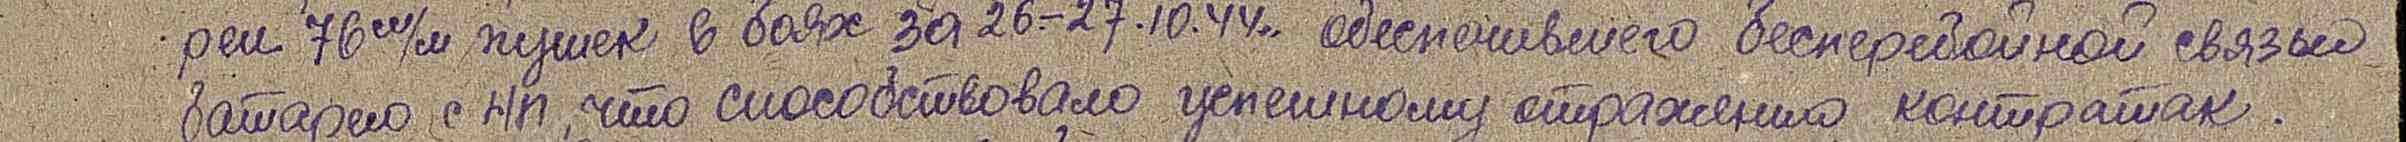 реи 76 м/м пушек в боях за 26-27.10.44г. обеспечившего бесперебойной связью
батарею с НП, что способствовало успешному отражению контратак.